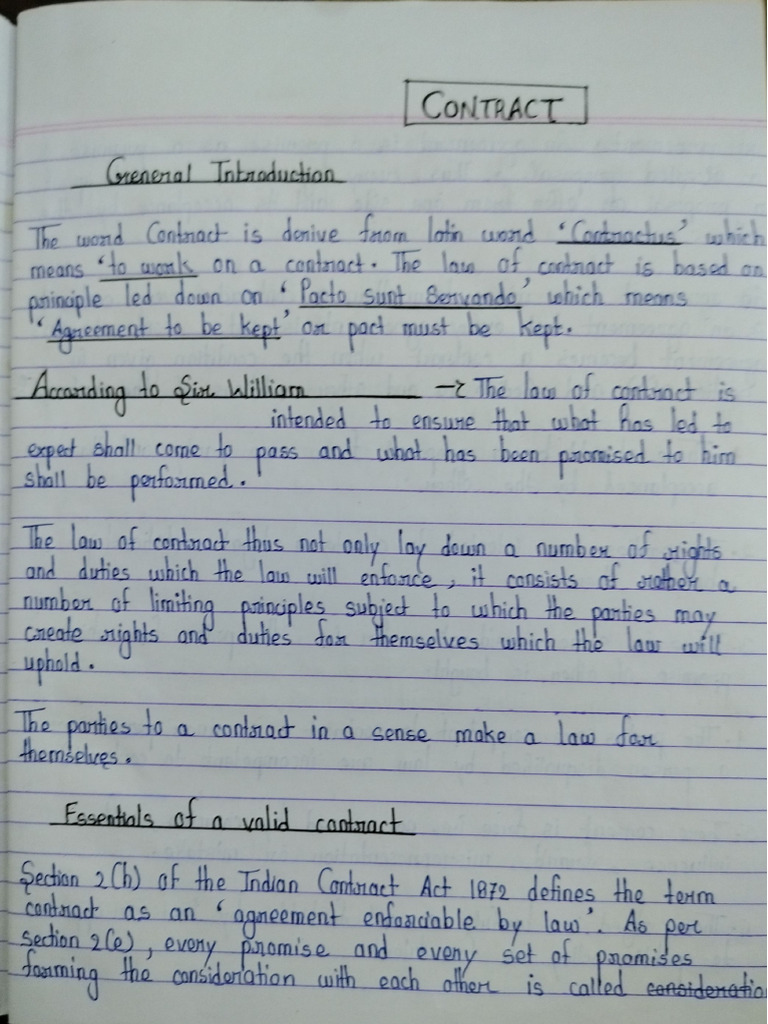 CONTRACT
General Introduction
The word Contract is derive from latin word 'Contractus' which
means 'to work on a contract. The law of contract is based on
principle led down on 'Pacta sunt Servando' which means
'Agreement to be kept' or pact must be kept.
According to Sir William → The law of contract is
intended to ensure that what has led to
expect shall come to pass and what has been promised to him
shall be performed.
The law of contract thus not only lay down a number of rights
and duties which the law will enforce, it consists of rather a
number of limiting principles subject to which the parties may
create rights and duties for themselves which the law will
uphold.
The parties to a contract in a sense make a law for
themselves.
Essentials of a valid contract
Section 2(h) of the Indian Contract Act 1872 defines the term
contract as an 'agreement enforciable by law'. As per
section 2(e), every promise and every set of promises
forming the consideration with each other is called consideratio